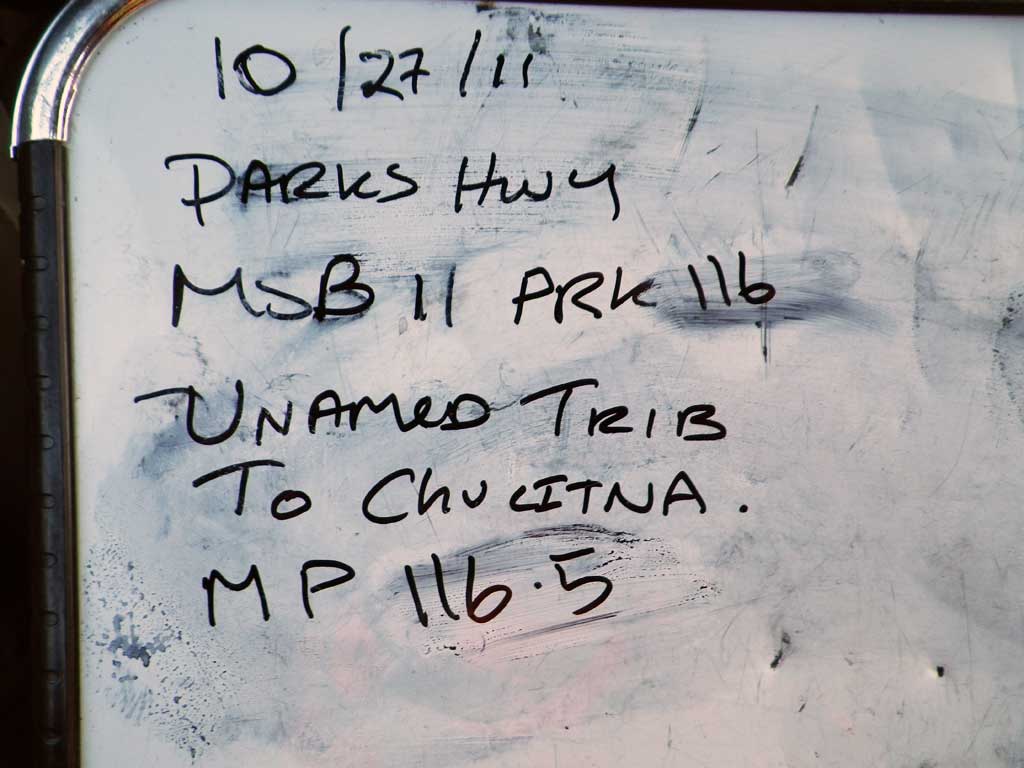 10/27/11
PARKS HWY
MSB 11 PRK 116
UNAMED TRIB
TO CHULITNA.
MP 116.5